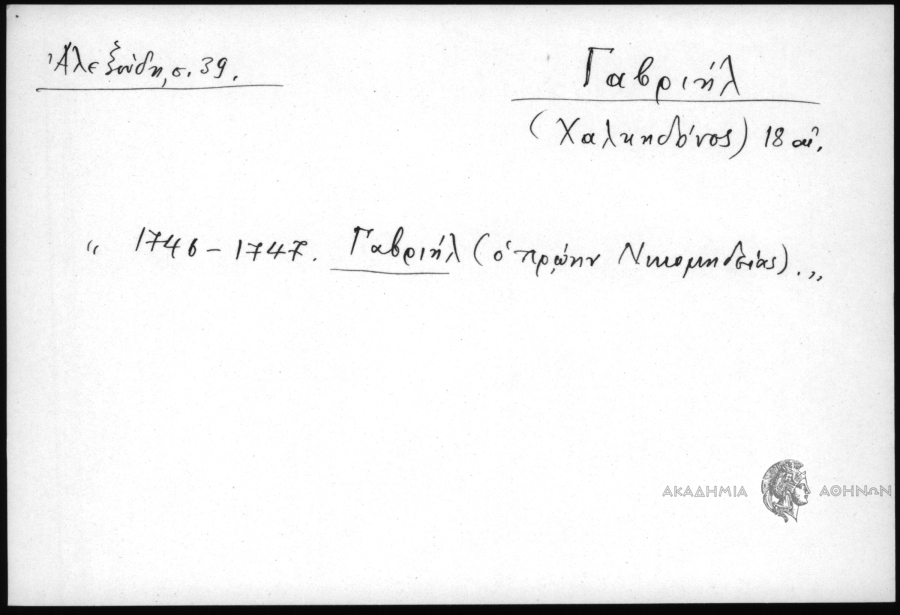 Ἀλεξούδη, σ. 39.
Γαβριήλ
(Χαλκηδόνος) 18 αἰ.
“ 1746 – 1747. Γαβριήλ (ὁ πρῴην Νικομηδείας). „
ΑΚΑΔΗΜΙΑ ΑΘΗΝΩΝ